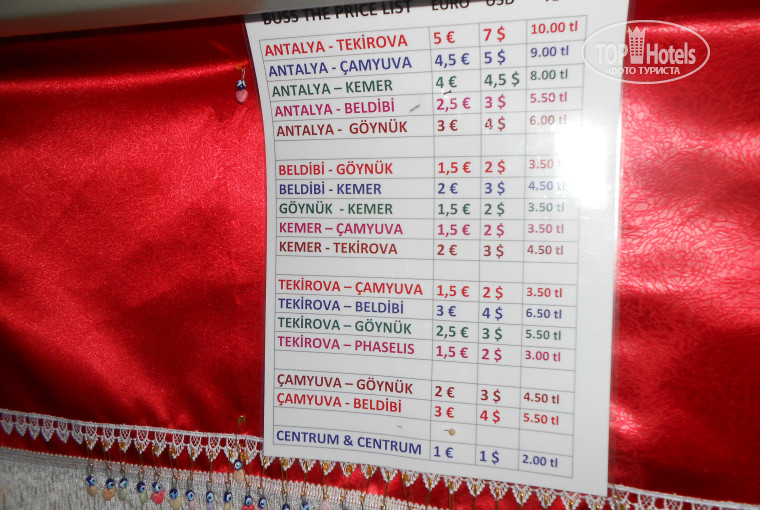 BUSS THE PRICE LIST EURO USD
ANTALYA - TEKİROVA 5 € 7 $ 10.00 tl
ANTALYA - ÇAMYUVA 4,5 € 5 $ 9.00 tl
ANTALYA – KEMER 4 € 4,5 $ 8.00 tl
ANTALYA - BELDİBİ 2,5 € 3 $ 5.50 tl
ANTALYA - GÖYNÜK 3 € 4 $ 6.00 tl
BELDİBİ - GÖYNÜK 1,5 € 2 $ 3.50 tl
BELDİBİ - KEMER 2 € 3 $ 4.50 tl
GÖYNÜK - KEMER 1,5 € 2 $ 3.50 tl
KEMER – ÇAMYUVA 1,5 € 2 $ 3.50 tl
KEMER – TEKİROVA 2 € 3 $ 4.50 tl
TEKİROVA – ÇAMYUVA 1,5 € 2 $ 3.50 tl
TEKİROVA – BELDİBİ 3 € 4 $ 6.50 tl
TEKİROVA – GÖYNÜK 2,5 € 3 $ 5.50 tl
TEKİROVA – PHASELIS 1,5 € 2 $ 3.00 tl
ÇAMYUVA – GÖYNÜK 2 € 3 $ 4.50 tl
ÇAMYUVA - BELDİBİ 3 € 4 $ 5.50 tl
CENTRUM & CENTRUM 1 € 1 $ 2.00 tl
TopHotels
ФОТО ТУРИСТА